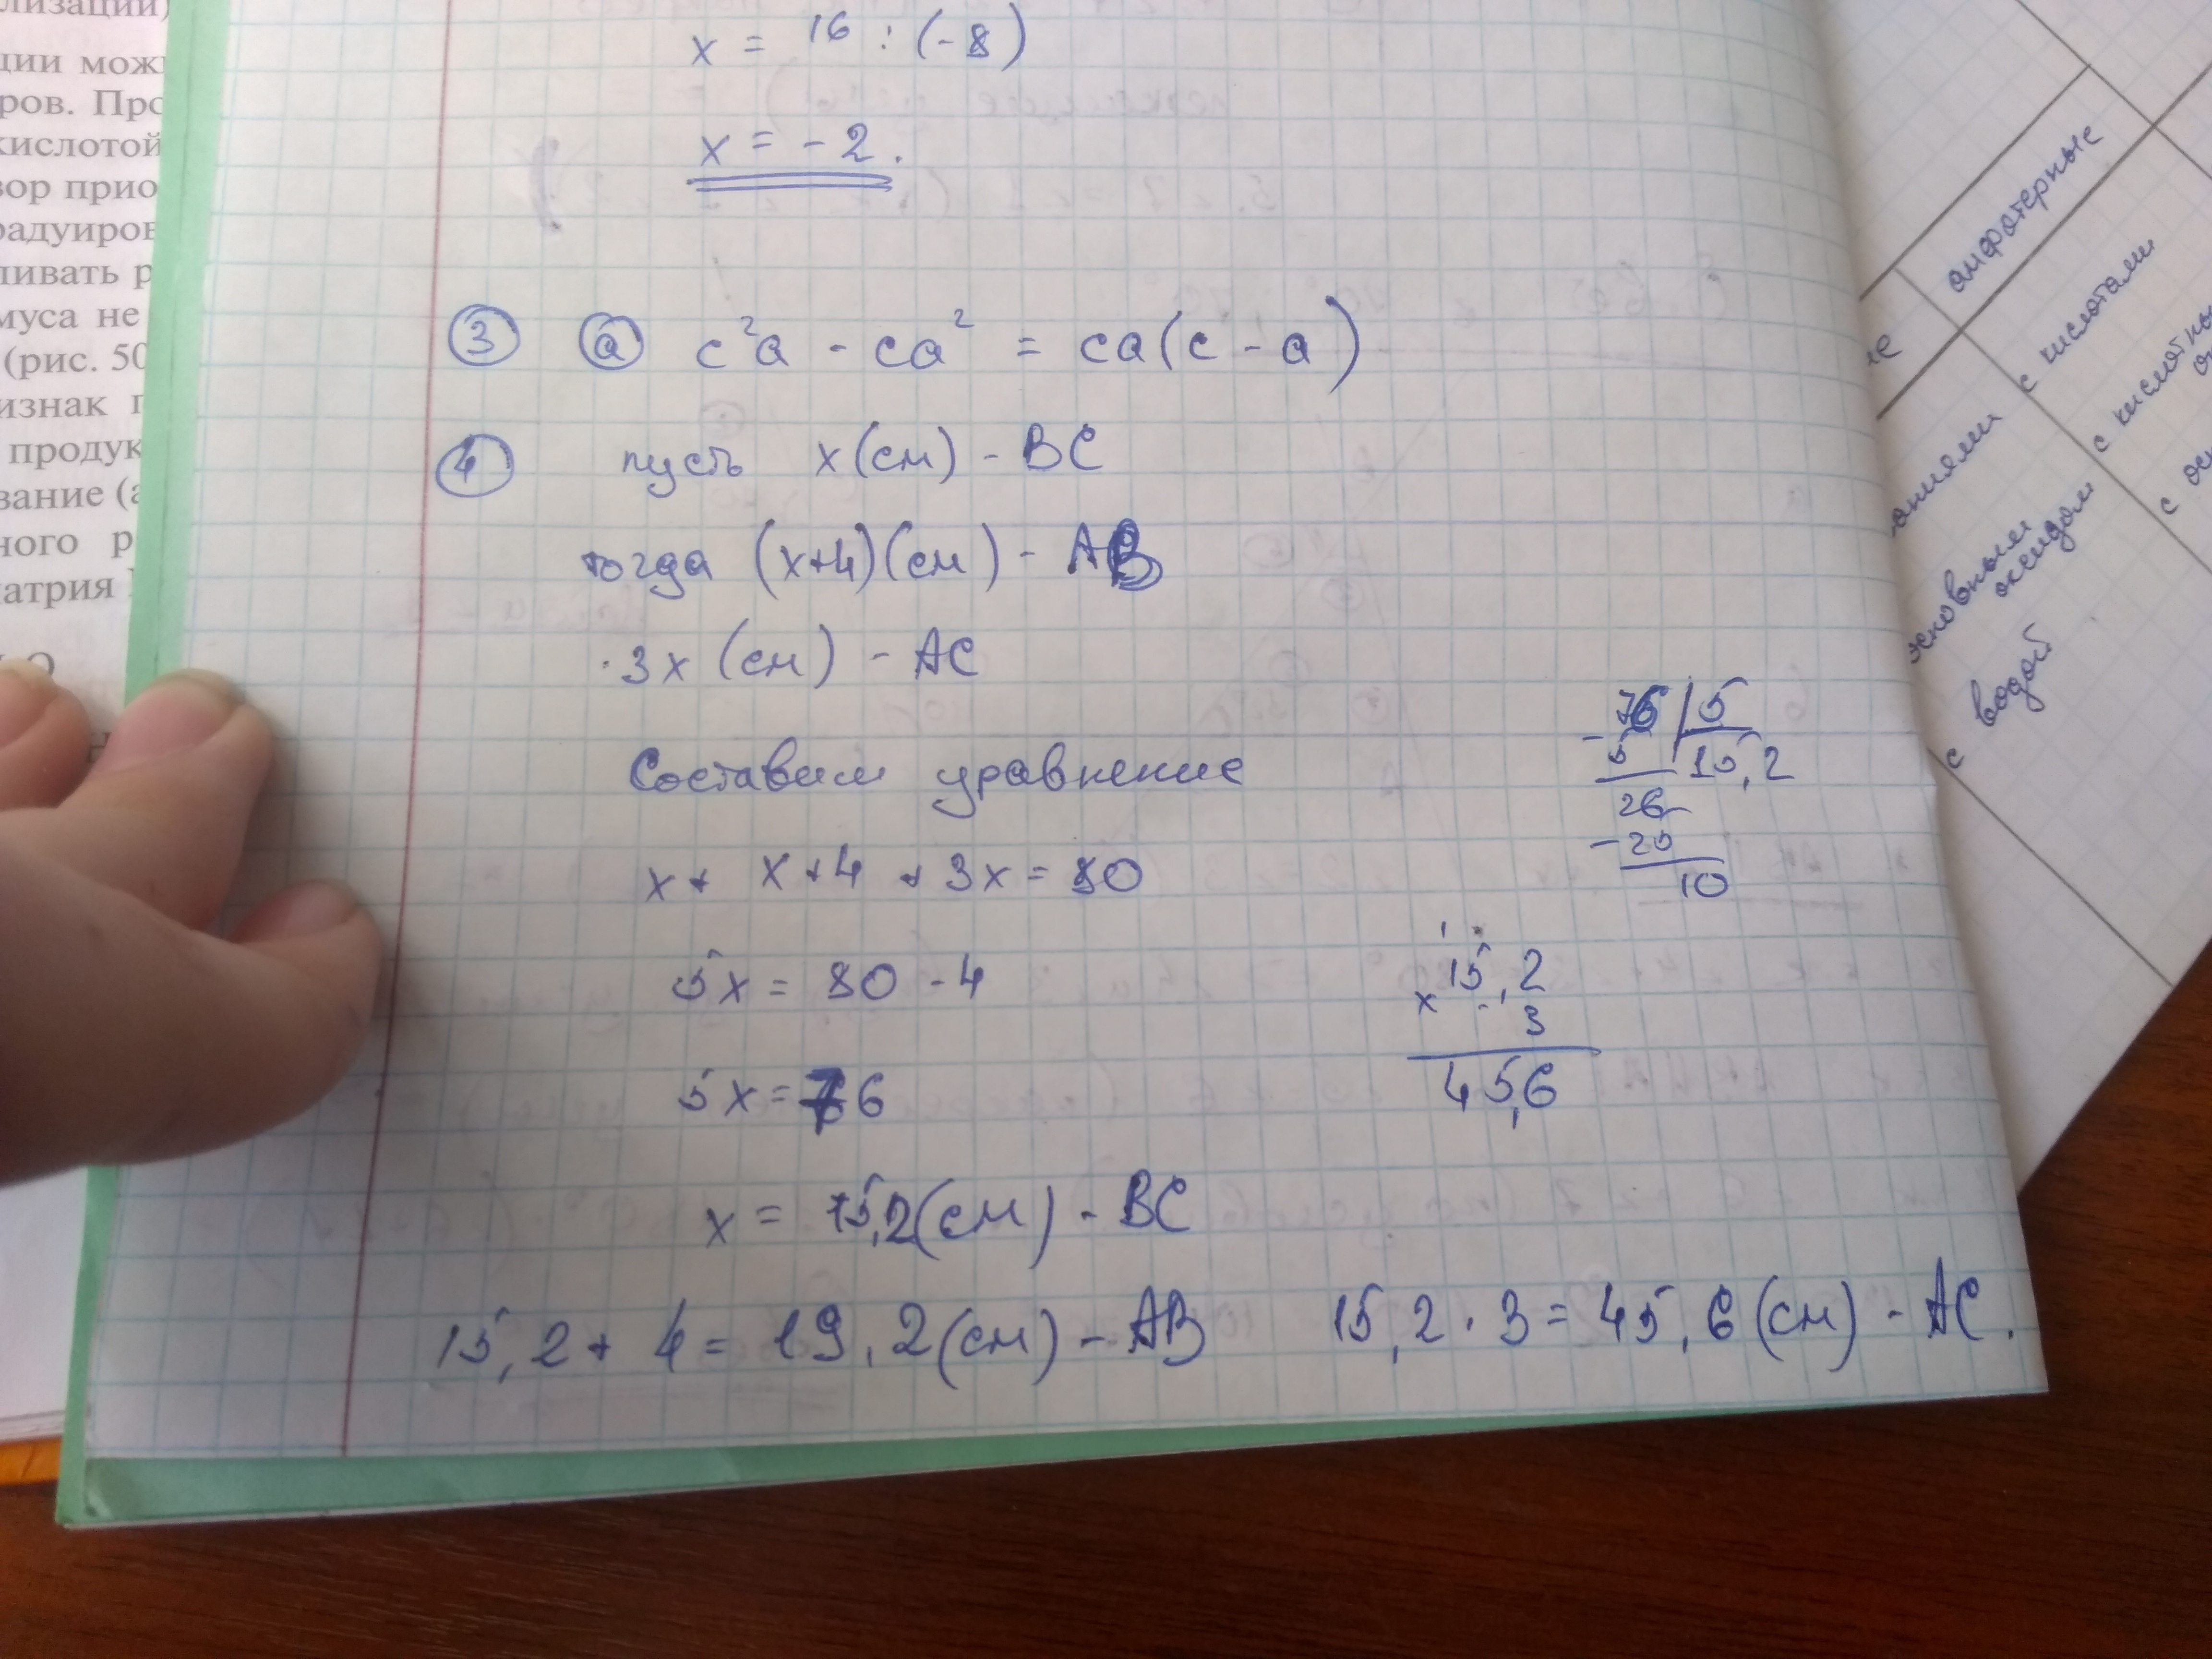 лизации)
ции мож
ров. Про
кислотой
вор прио
радуиров
ливать р
муса не
(рис. 50
изнак п
продук
вание (а
ного р
матрия
x = 16 : (-8)
x = -2.
③ ⓐ c²a - ca² = ca(c - a)
④ пусть x(см) - BC
тогда (x+4)(см) - AB
3x (см) - AC
Составим уравнение
x + x+4 + 3x = 80
5x = 80 - 4
5x = 76
x = 15,2(см) - BC
15,2 + 4 = 19,2(см) - AB 15,2 · 3 = 45,6(см) - AC.
- 76 | 5
5 15,2
26
- 25
10
15,2
x 3
45,6
амфотерные
с кислотами
с кислотны
с
основным
оксидом
с водой